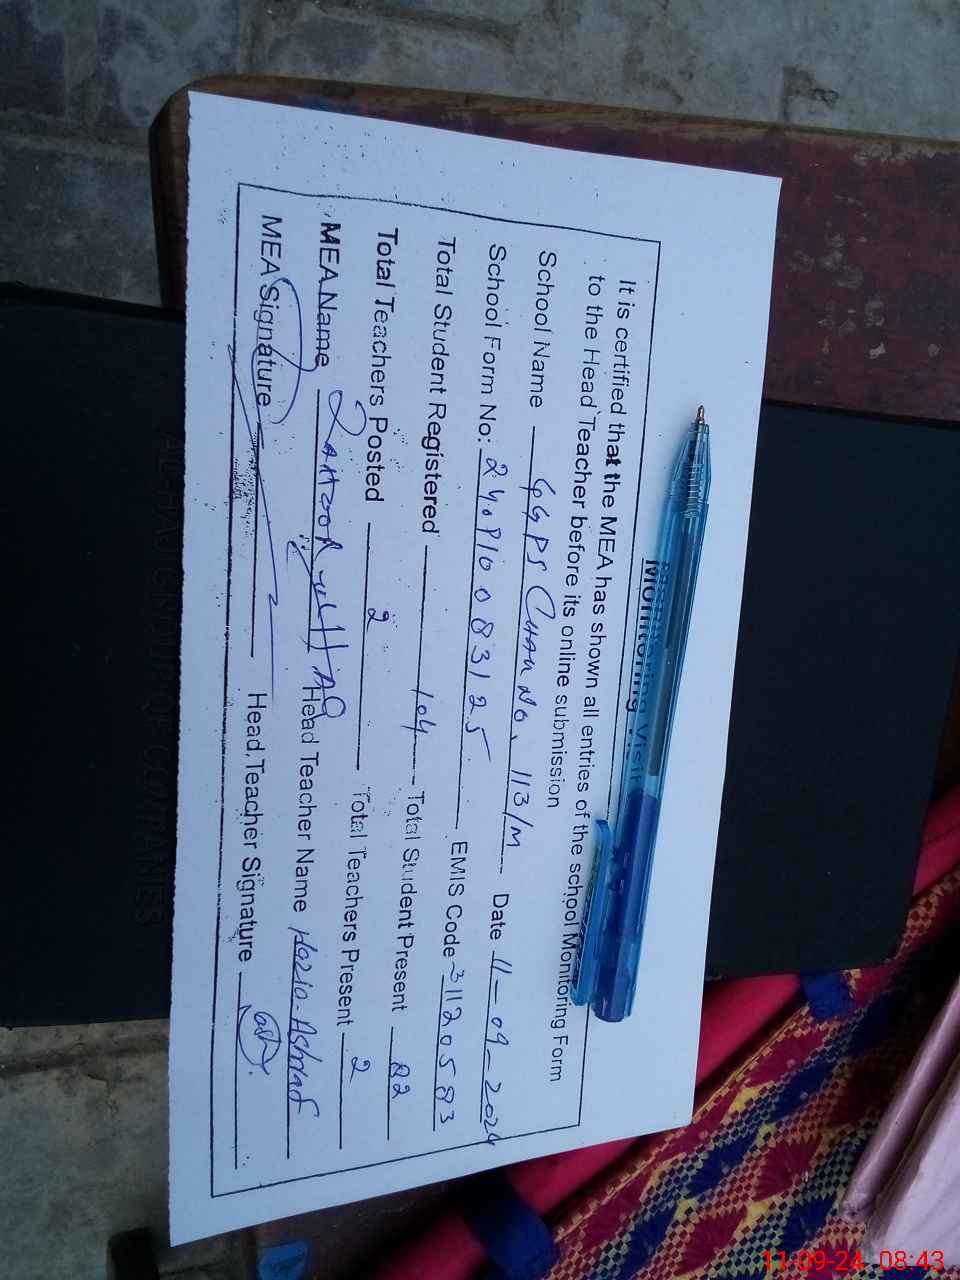 Monitoring Visit
It is certified that the MEA has shown all entries of the school Monitoring Form
to the Head Teacher before its online submission
School Name GGPS CHAK No. 113/M Date 11-09-2024
School Form No: 083125 EMIS Code 31120583
Total Student Registered 104 Total Student Present 82
Total Teachers Posted 2 Total Teachers Present 2
MEA Name Head Teacher Name
MEA Signature Head Teacher Signature
GROUP OF COMPANIES
11-09-24 08:43